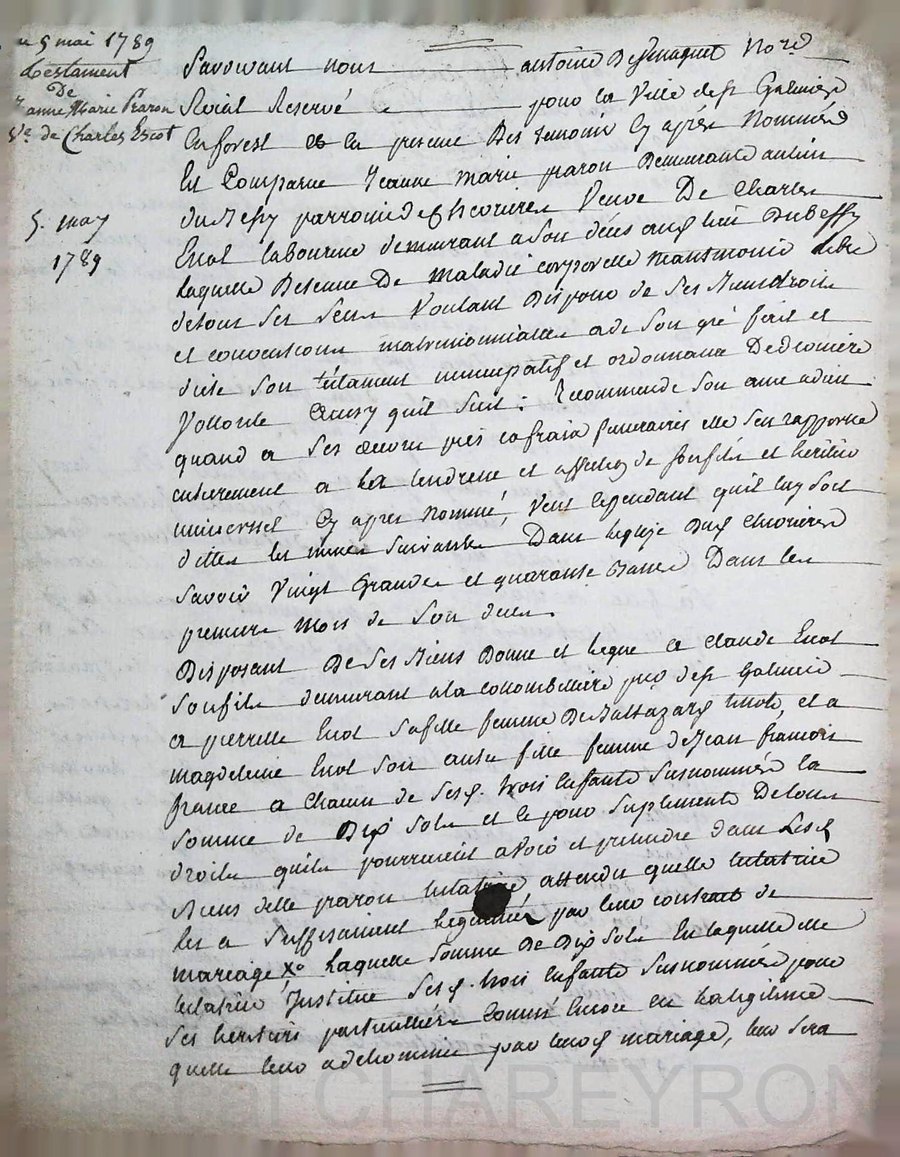 5 mai 1789
testament
De
Jeanne Marie Praron
Ve. de Charles Escot
5. may
1789
Pardevant nous antoine Desjnaquet Nore
Roial Reservé pour la Ville de st Galmier
En forest et En presence Des temoins Cy après Nommés
Est Comparue Jeanne Marie praron Demeurante au lieu
parroisse de Chevrieres Veuve De Charles
Escot laboureur demeurant a Son décés audt lieu
laquelle Detenue De maladie corporelle Neantmoins libre
de tous ses sens Voulant Disposer de Ses Biens droits
et conventions matrimonialles a de Son gré fait et
dicté Son téstament nuncupatif et ordonnance De derniere
Vollonté Ainsy quil suit : Recommande Son ame a dieu
quand a Ses œuvres pies et fraix funeraires elle s'en rapporte
entierement a La tendresse et affection de son fils et heritier
universel Cy apres Nommé, Veut Cependant quil luy soit
dittes les messes suivantes Dans leglize Dud chevrieres
Savoir Vingt Grandes et quarante Basses Dans les
premiers mois de Son deces
Disposant De Ses Biens Donne et legue a Claude Escot
Son fils demeurant a la Colombilliere près de st Galmier
a pierrette Escot Sa fille femme De Baltazard et a
magdeleine Escot Son autre fille femme de Jean françois
france a Chacun de Sesd. trois Enfants Susnommés la
Somme de Dix Sols et ce pour Suplements De tous
droits quils pourroient avoir et pretendre dans Lesd
Biens delle praron testatrice attendu quelle testatrice
les a Suffisament Legitimés par leur contrat de
mariage Xo laquelle Somme De Dix Sols En laquelle elle
testatrice Institue Sesd. trois Enfants Susnommés pour
Ses heritiers particulliers Comme Encore En la legitime
quelle leur a par leursd mariage, leur sera
CHAREYRON